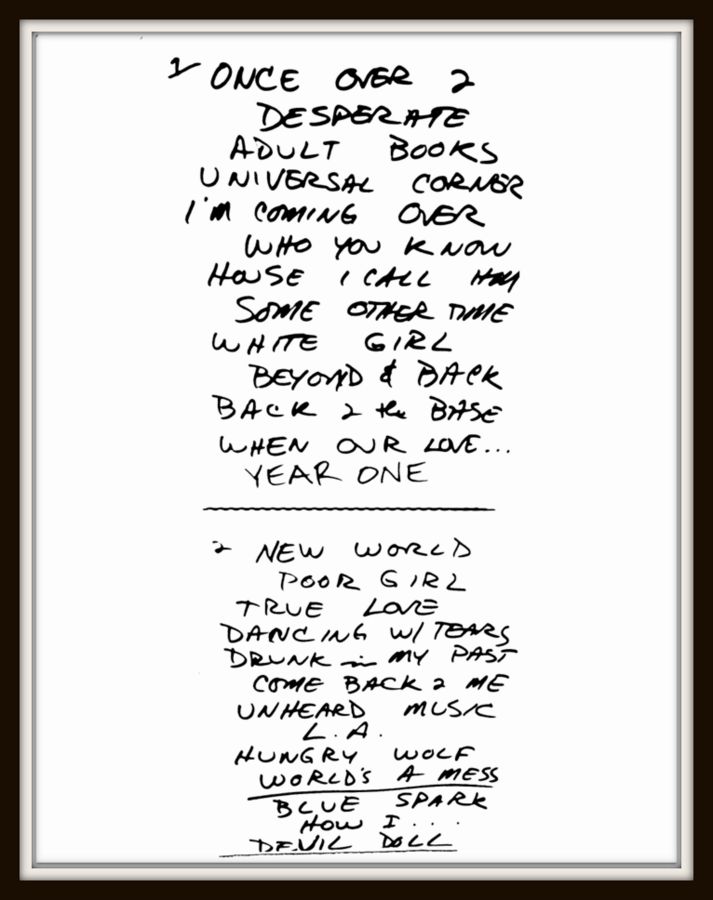 1 ONCE OVER 2
DESPERATE
ADULT BOOKS
UNIVERSAL CORNER
I'M COMING OVER
WHO YOU KNOW
HOUSE I CALL
SOME OTHER TIME
WHITE GIRL
BEYOND & BACK
BACK 2 the BASE
WHEN OUR LOVE...
YEAR ONE
2 NEW WORLD
POOR GIRL
TRUE LOVE
DANCING W/ TEARS
DRUNK in MY PAST
COME BACK 2 ME
UNHEARD MUSIC
L.A.
HUNGRY WOLF
WORLD'S A MESS
BLUE SPARK
HOW I...
DEVIL DOLL